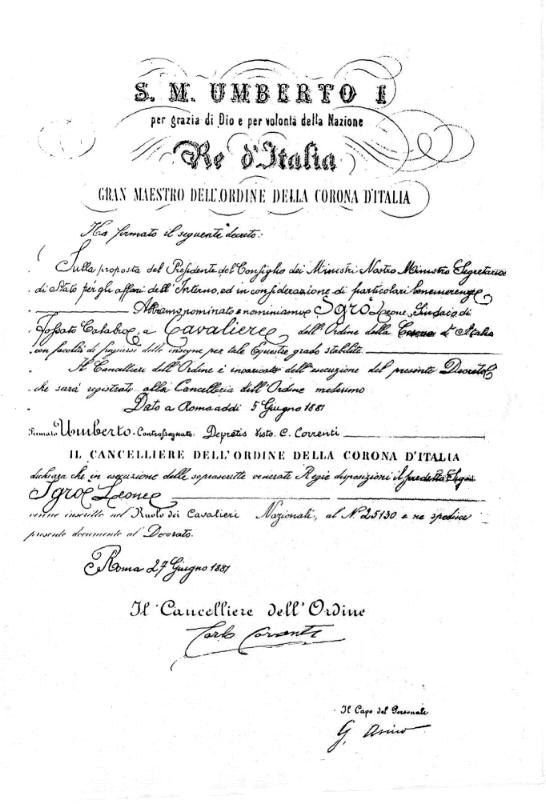 S. M. UMBERTO I
per grazia di Dio e per volontà della Nazione
Re d'Italia
GRAN MAESTRO DELL'ORDINE DELLA CORONA D'ITALIA
Ha firmato il seguente decreto:
Sulla proposta del Presidente del Consiglio dei Ministri Nostro Ministro Segretario
di Stato per gli affari dell'Interno, ed in considerazione di particolari benemerenze
Abbiamo nominato e nominiamo Sgrò Leone, Sindaco di
Fossato Calabro a Cavaliere dell'Ordine della Corona d'Italia
con facoltà di fregiarsi delle insegne per tale Equestre grado stabilite.
Il Cancelliere dell'Ordine è incaricato dell'esecuzione del presente Decreto
che sarà registrato alla Cancelleria dell'Ordine medesimo
Dato a Roma addì 5 Giugno 1881
Firmato Umberto. Controsegnato Depretis Visto C. Correnti
IL CANCELLIERE DELL'ORDINE DELLA CORONA D'ITALIA
dichiara che in esecuzione delle soprascritte venerate Regie disposizioni il predetto
Sgrò Leone
venne inscritto nel Ruolo dei Cavalieri Nazionali, al N° 25130 e ne spedisce
presente documento al Decorato.
Roma 27 Giugno 1881
Il Cancelliere dell'Ordine
Carlo Correnti
Il Capo del Personale
G.